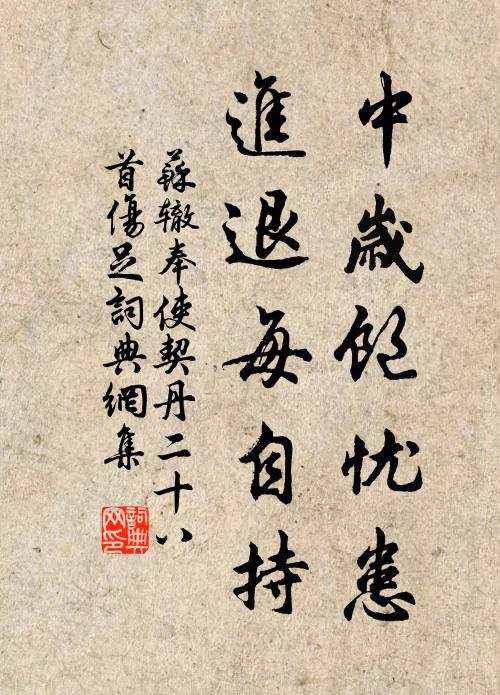 中歲飽忧患
進退每自持
蘇辙奉使契丹二十八
首傷足詞典網集
詞典
网印